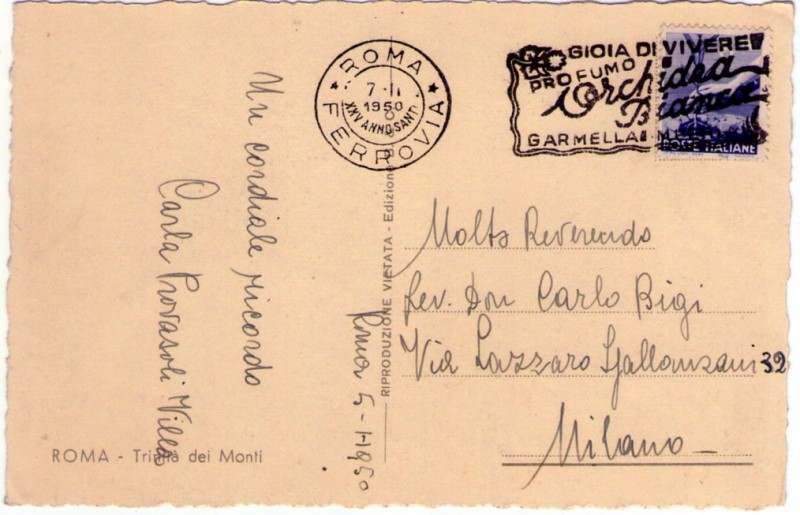 Un cordiale ricordo
Carla Provasoli Villa
Roma 5-1-1950
ROMA - Trinità dei Monti
ROMA
7-II
1950
XXV ANNO SANTO
FERROVIA
RIPRODUZIONE VIETATA - Edizione
GIOIA DI VIVERE
PROFUMO
Orchidea
Bianca
GARMELLA
POSTE ITALIANE
Molto Reverendo
Rev. Don Carlo Bigi
Via Lazzaro Spallanzani 32
Milano